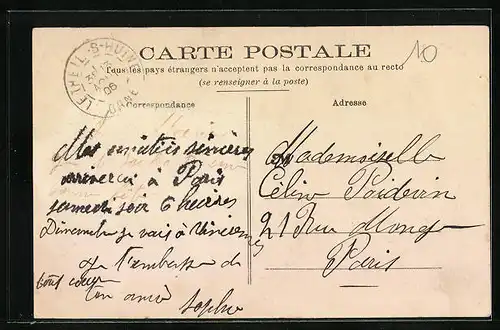 CARTE POSTALE
Tous les pays étrangers n'acceptent pas la correspondance au recto
(se renseigner à la poste)
Correspondance
Adresse
LE THEIL-S-HUISNE
06
ORNE
10
Mes amitiés sincères
à Paris
samedi soir 6 heures
Dimanche je vais à Vincennes
Je t'embrasse de
tout coeur
ton amie
Mademoiselle
Céline Poidevin
21 Rue Monge
Paris